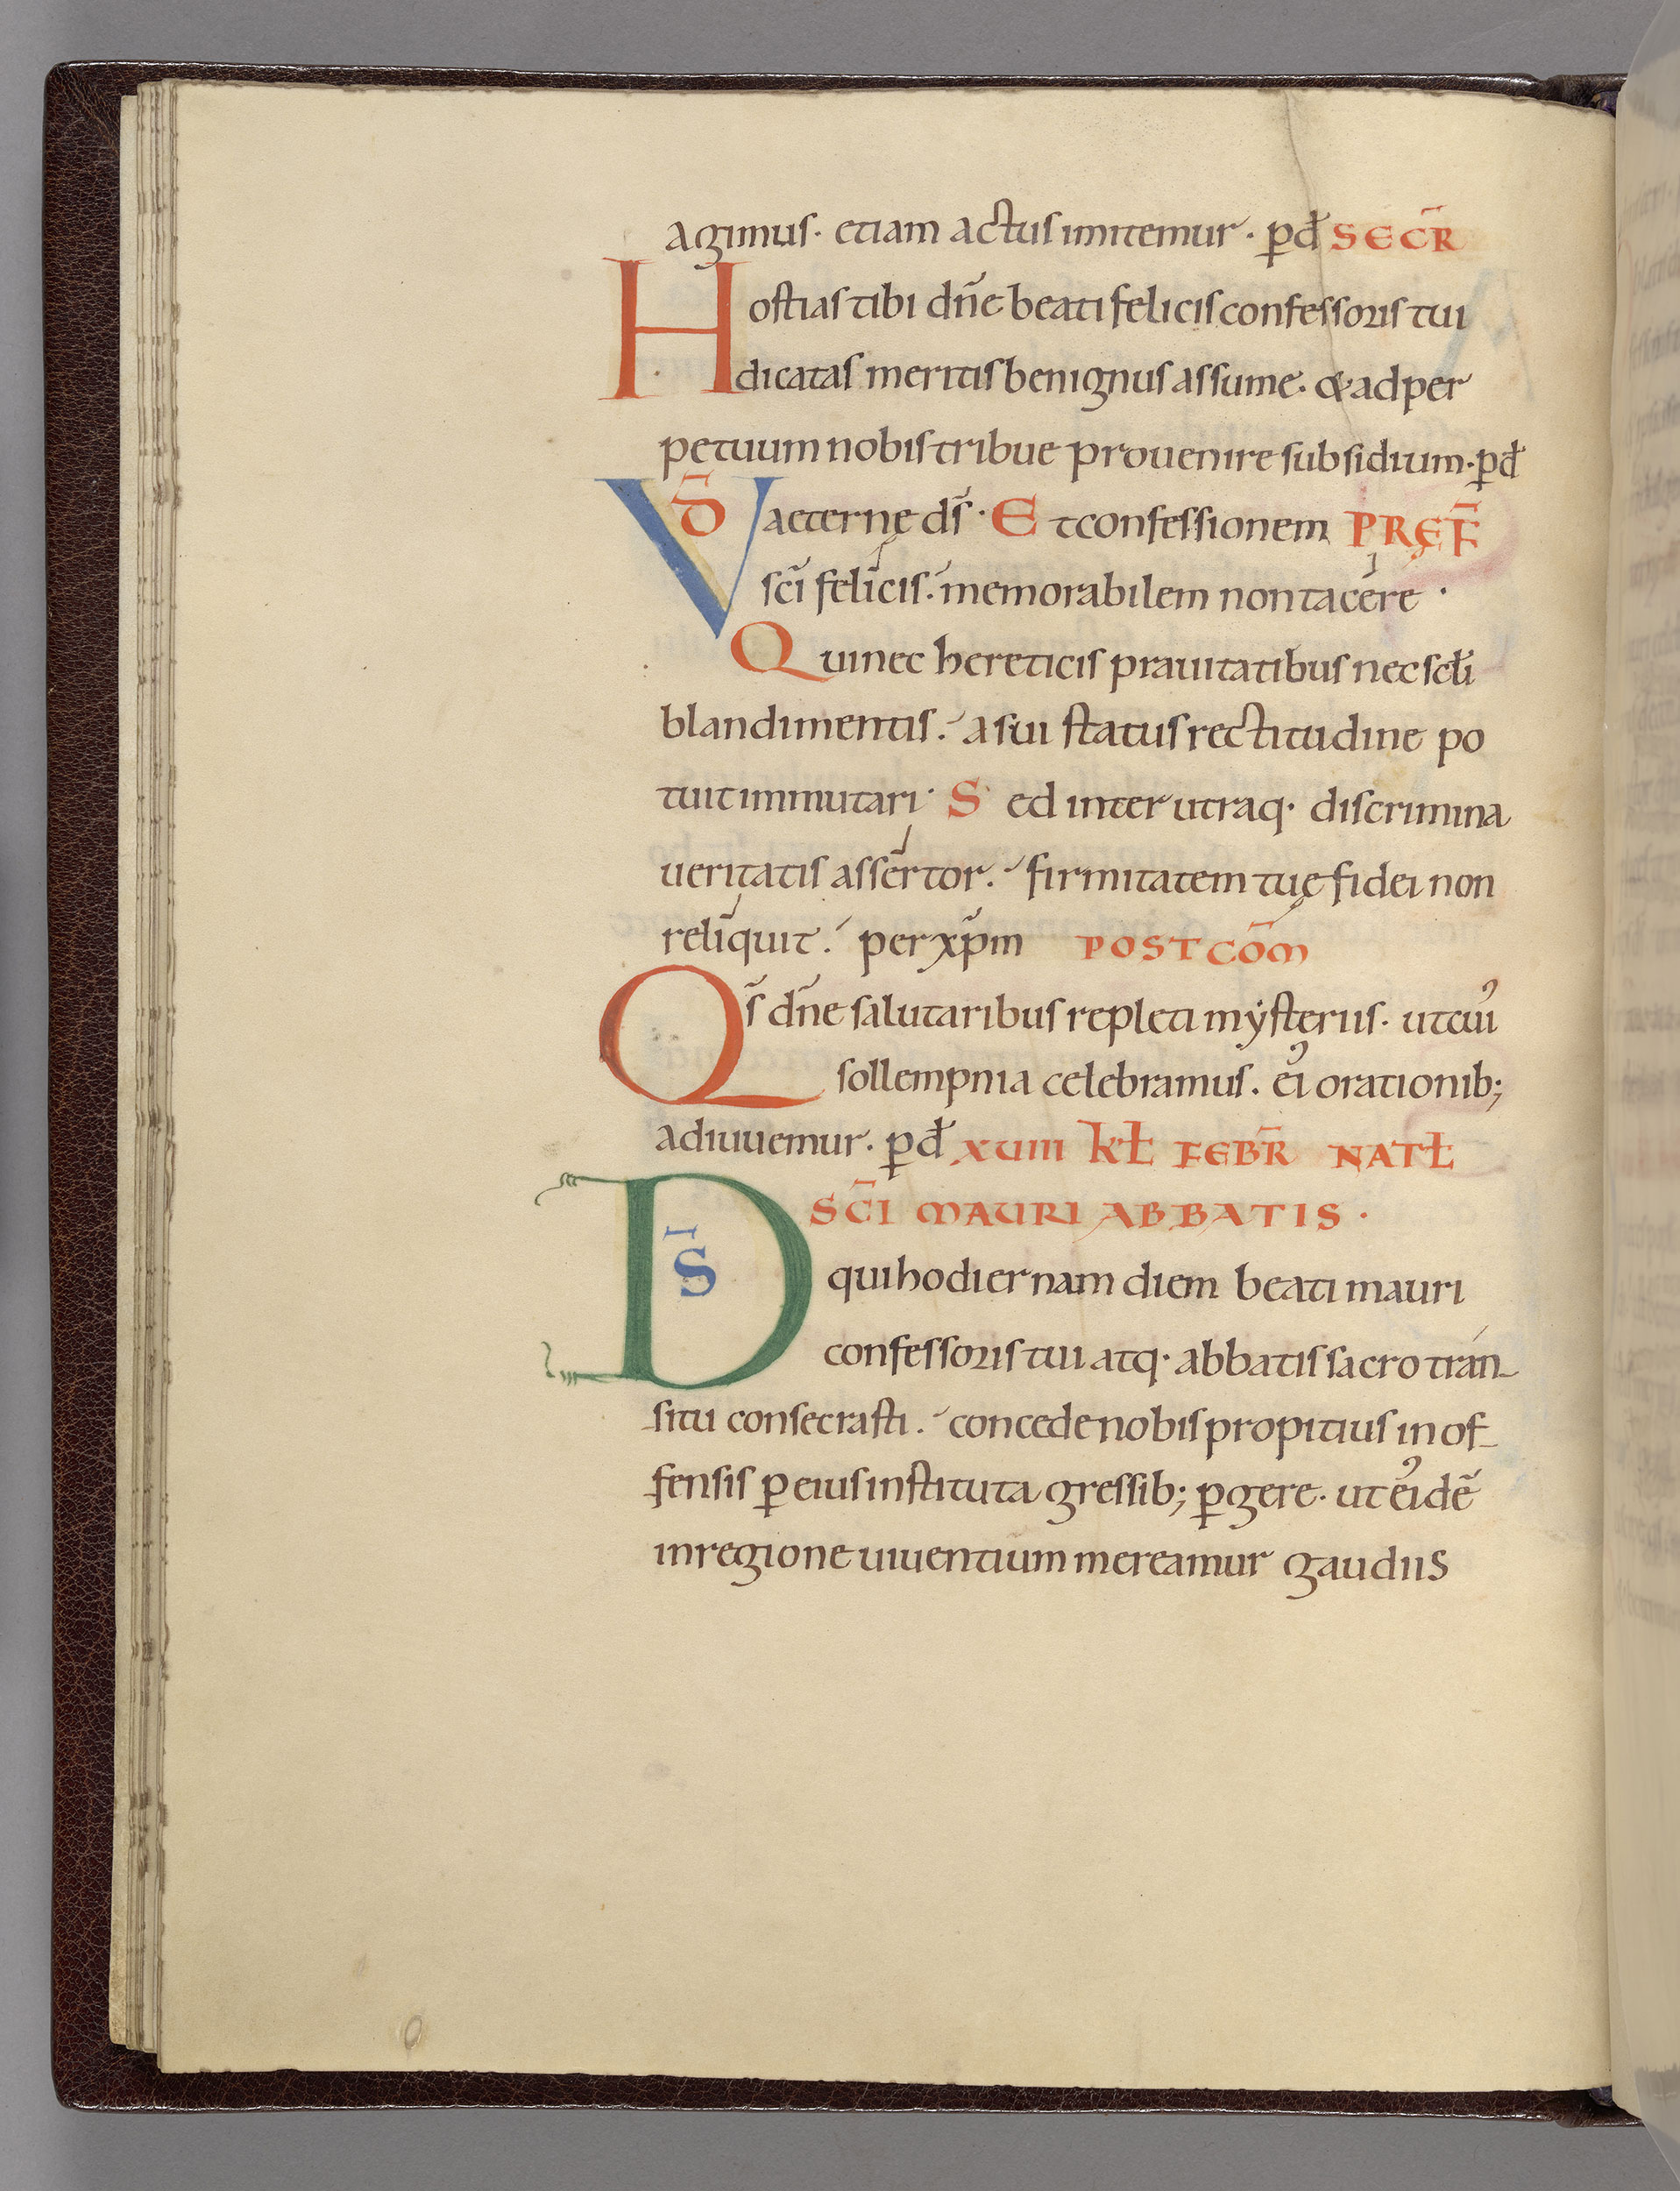 agimus· etiam actus imitemur· p̄d SECR̄
Hostias tibi dn̄e beati felicis confessoris tui
dicatas meritis benignus assume· & ad per
petuum nobis tribue prouenire subsidium· p̄d
VD̄ aeternę ds̄· Et confessionem PRĘF̄
sc̄i felicis· memorabilem non tacere·
Qui nec hereticis prauitatibus nec sc̄li
blandimentis· a sui status rectitudine po
tuit immutari· Sed inter utraq· discrimina
ueritatis assertor· firmitatem tuę fidei non
reliquit· per xp̄m POST CŌM
Qs̄ dn̄e salutaribus repleti mẏsteriis· ut cuiꝰ
sollempnia celebramus· eiꝰ orationib;
adiuuemur· p̄d XVIII KƚƗ FEBR̄ NATƚ
SC̄I MAURI ABBATIS·
DS̄ qui hodiernam diem beati mauri
confessoris tui atq· abbatis sacro tran-
situ consecrasti· concede nobis propitius in of-
fensis ꝑ eius instituta gressib; ꝑgere· ut eiꝰdē
in regione uiuentium mereamur gaudiis